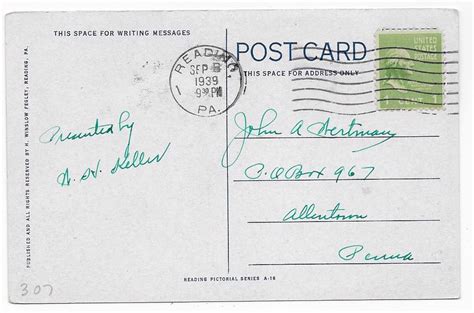 THIS SPACE FOR WRITING MESSAGES
POST CARD
THIS SPACE FOR ADDRESS ONLY
READING,
SEP
1939
9 30 PM
PA.
1
1
UNITED STATES
POSTAGE
Presented by
Keller
John A Hertman
P.O Box 967
Allentown
Penna
PUBLISHED AND ALL RIGHTS RESERVED BY H. WINSLOW FEGLEY, READING, PA.
READING PICTORIAL SERIES A-16
307